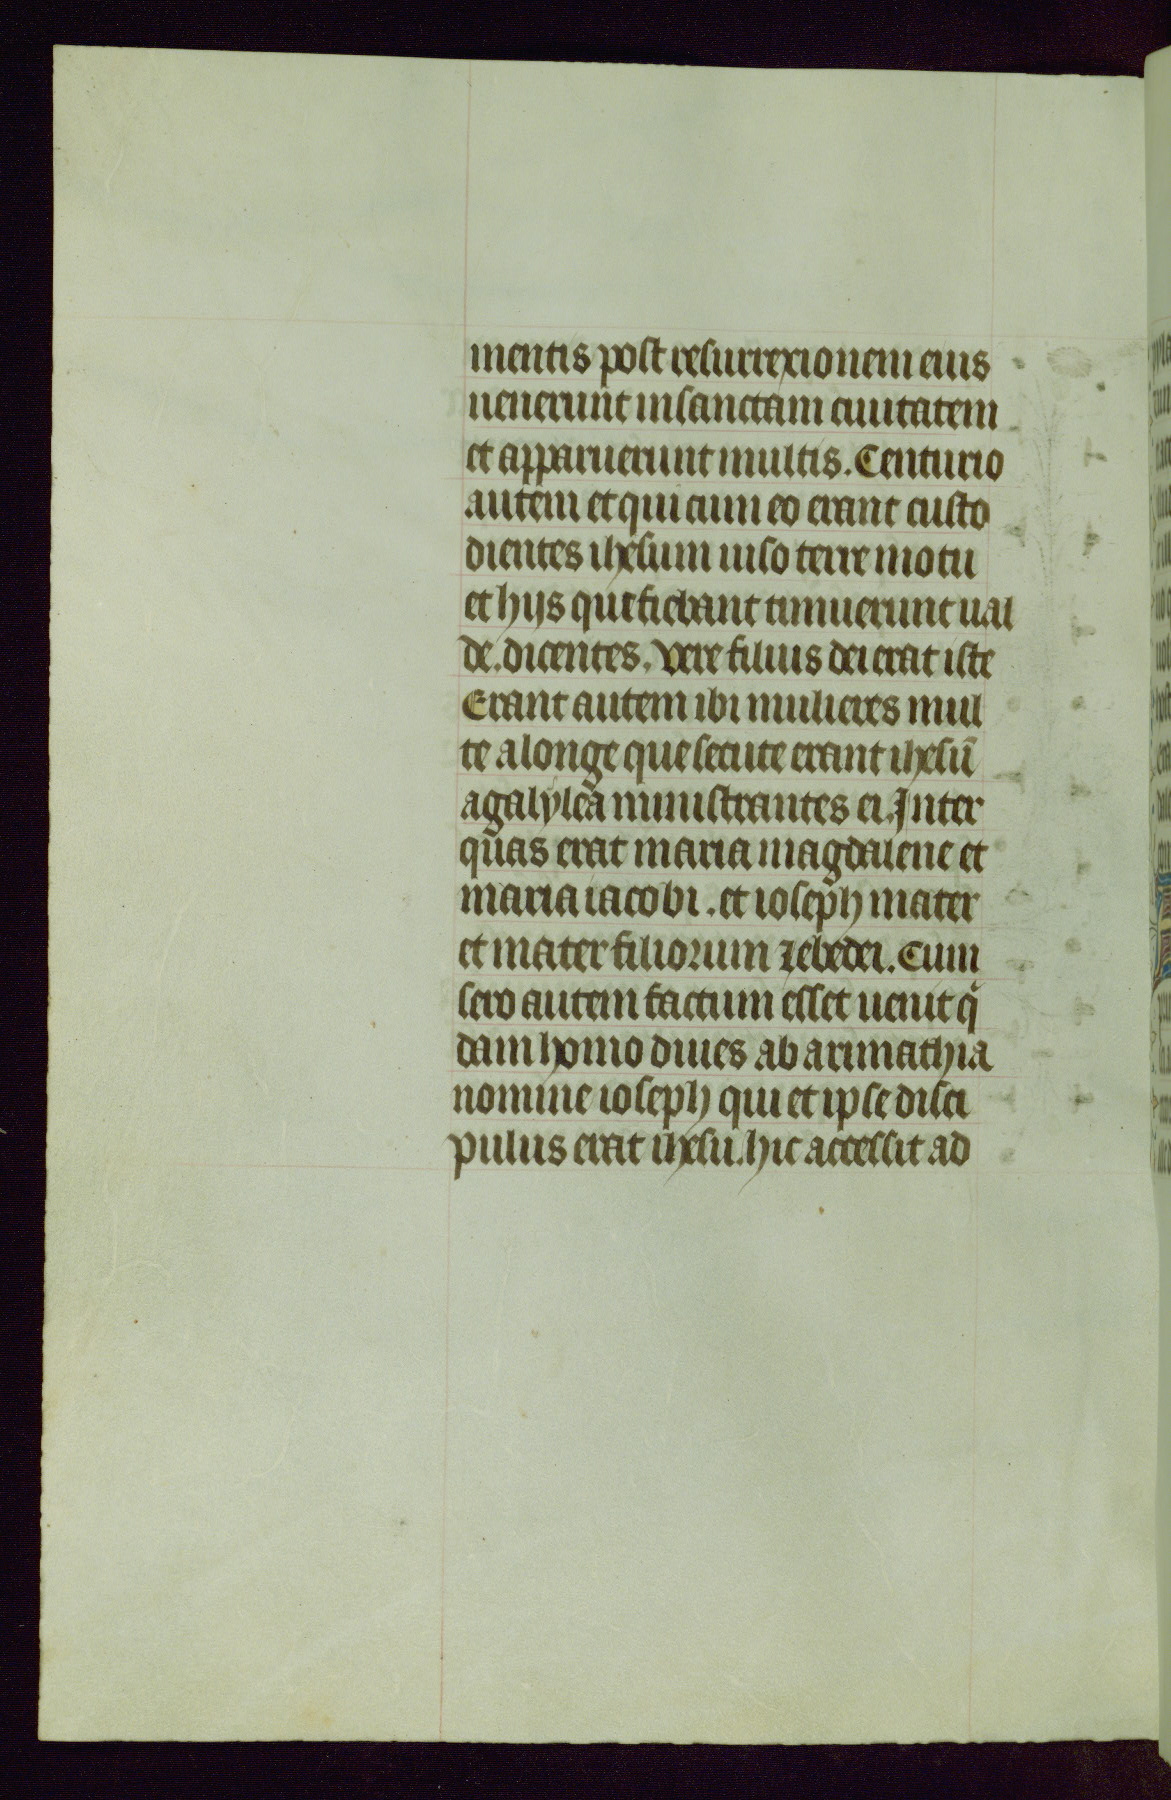 mentis post resurrexionem eius
uenerunt in sanctam ciuitatem
et apparuerunt multis. Centurio
autem et qui cum eo erant custo
dientes ihesum uiso terre motu
et hijs que fiebant timuerunt ual
de. dicentes. Vere filius dei erat iste
Erant autem ibi mulieres mul
te a longe que secute erant ihesū
a galyleā ministrantes ei. Inter
quas erat maria magdalene et
maria iacobi. et ioseph mater
et mater filiorum zebedei. Cum
sero autem factum esset uenit q̄
dam homo diues ab arimathia
nomine ioseph qui et ipse disci
pulus erat ihesu. hic accessit ad